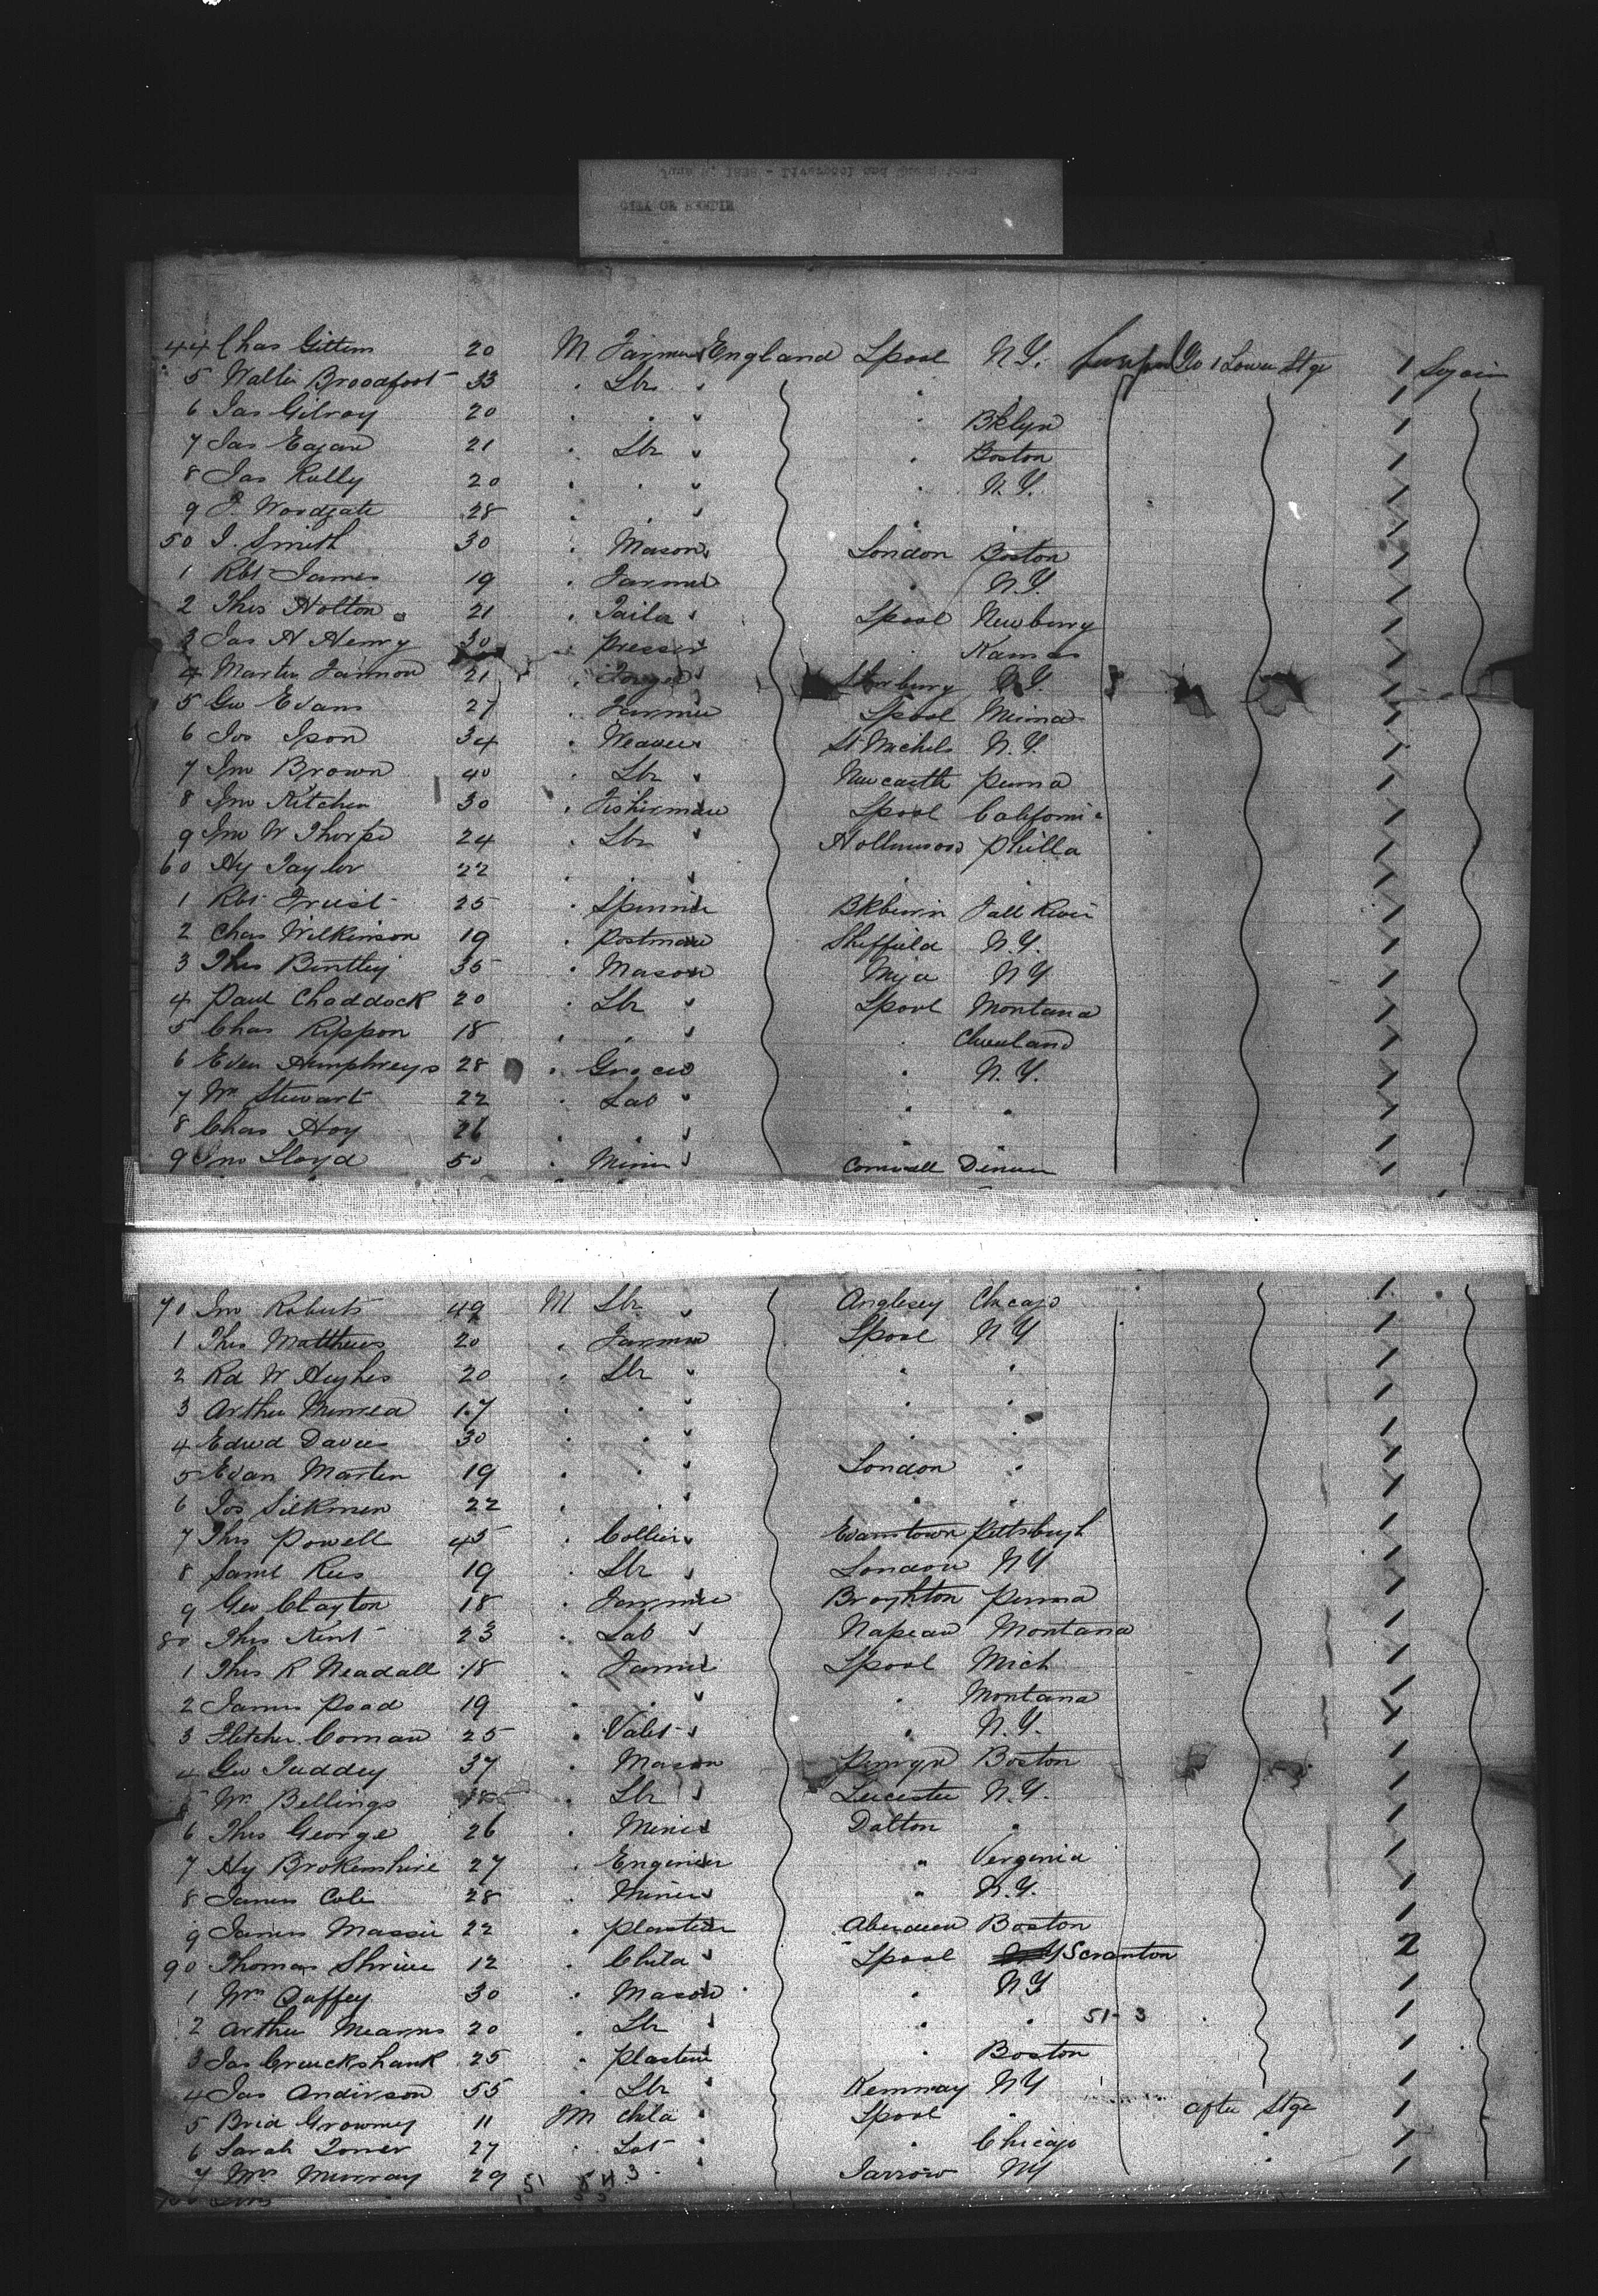 June 8, 1888 - Liverpool and Queenstown
CITY OF BERLIN
44 Chas Gittins 20 M Farmer England Lpool N.Y. No 1 Lower Stge 1
5 Walter Broadfoot 33 . Lbr " . . 1
6 Jas Gilroy 20 . . " . Bklyn 1
7 Jas Eagan 21 . Lbr " . Boston 1
8 Jas Kelly 20 . . " . N.Y. 1
9 J. Woodgate 28 . . " . . 1
50 J. Smith 30 . Mason " London Boston 1
1 Rbt James 19 . Farmer . N.Y. 1
2 Thos Holton 21 . Tailor " Lpool Newburg 1
3 Jas H Henry 30 . Presser . Kansas 1
4 Martin Fannon 21 . N.Y. 1
5 Geo Evans 27 . Farmer Lpool 1
6 Jos Ipson 34 . Weaver St Michels N.Y. 1
7 Jno Brown 40 . Lbr " Newcastle Penna 1
8 Jno Kitchen 30 . Fisherman Lpool California 1
9 Jno W Thorpe 24 . Lbr " Hollinwood Philla 1
60 Hy Taylor 22 . . " . . 1
1 Rbt Truist 25 . Spinner Bkburn Fall River 1
2 Chas Wilkinson 19 . Postman Sheffield N.Y. 1
3 Thos Bentley 35 . Mason N.Y 1
4 Paul Chaddock 20 . Lbr " Lpool Montana 1
5 Chas Rippon 18 . . " . Cleveland 1
6 Even Humphreys 28 . Grocer . N.Y. 1
7 Wm Stewart 22 . Lab " . . 1
8 Chas Hoy 26 . . " . . 1
9 Jno Lloyd 50 . Miner " Cornwall Denver 1
70 Jno Roberts 49 M Lbr " Anglesey Chicago 1
1 Thos Matthews 20 . Farmer Lpool N Y 1
2 Rd W Hughes 20 . Lbr " . . 1
3 Arthur 17 . . " . . 1
4 Edwd Davies 30 . . " . . 1
5 Evan Martin 19 . . " London . 1
6 Jos Silkmen 22 . . " . . 1
7 Thos Powell 45 . Collier " Evanstown Pittsburgh 1
8 Saml Rees 19 . Lbr " London N Y 1
9 Geo Clayton 18 . Farmer Broghton Penna 1
80 Thos Kent 23 . Lab " Napeau Montana 1
1 Thos R Neadall 18 . Farmer Lpool Mich 1
2 James Poad 19 . . " . Montana 1
3 Fletcher Coman 25 . Valet " . N.Y. 1
4 Geo Tuddey 37 . Mason Penryn Boston 1
5 Wm Bellings 18 . Lbr " Leicester N.Y. 1
6 Thos George 26 . Miner Dalton . 1
7 Hy Brokenshire 27 . Engineer " Verginia 1
8 James Cole 28 . Miner " N.Y. 1
9 James Massie 22 . Plasterer Aberdeen Boston 1
90 Thomas Shrive 12 . Child " Lpool Scranton 2
1 Wm Duffey 30 . Mason . N Y 1
2 Arthur Mearns 20 . Lbr " . . 51-3 1
3 Jas Cruickshank 25 . Plasterer . Boston 1
4 Jas Anderson 55 . Lbr " Kemnay N Y 1
5 Brid Growney 11 M Child " Lpool . After Stge 1
6 Sarah Toner 27 . Lab " . Chicago . 1
7 Mrs Murray 29 . Jarrow N Y 1
51 54 3